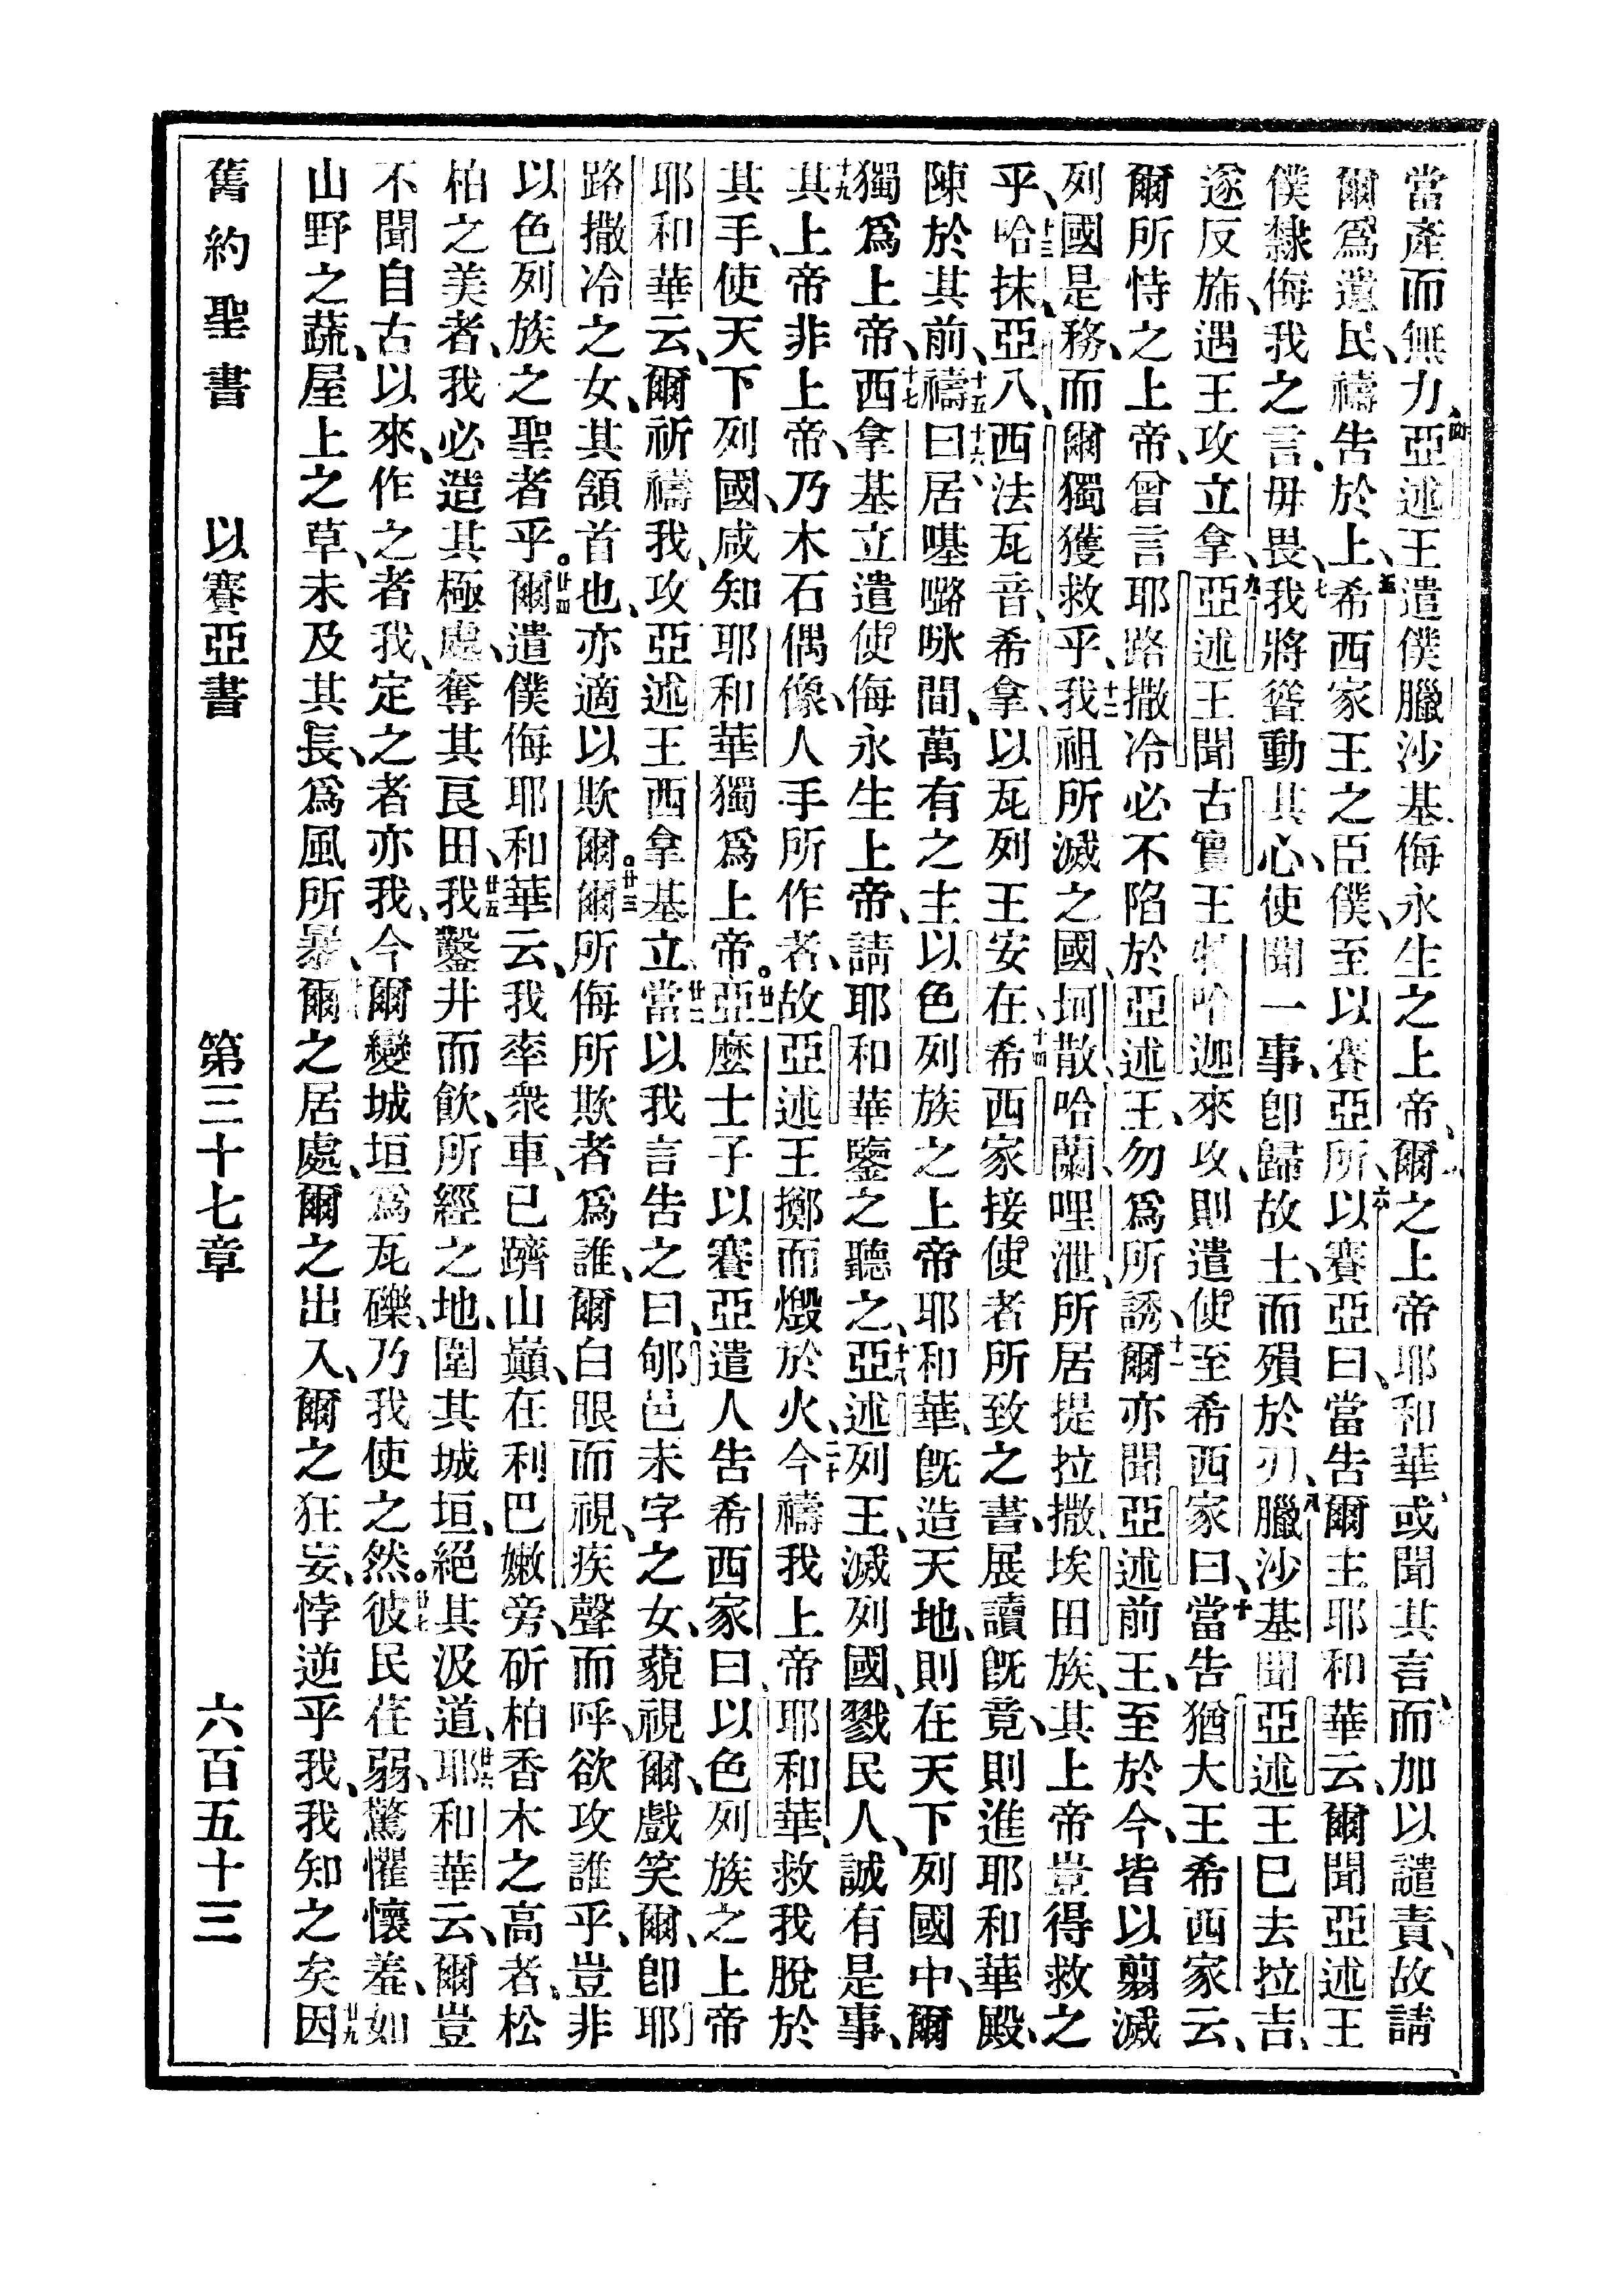 當產而無力、四亞述王、遣五僕臘沙基侮永生之上帝、爾之上帝耶和華、或聞其言、而加以譴責、故請
爾爲遺民、禱告於上、希西家王之臣僕、至以賽亞所、六以賽亞曰、當告爾主、耶和華云、爾聞亞述王
僕隸侮我之言、毋畏、七我將聳動其心、使聞一事、卽歸故土、而殞於刃、八臘沙基聞亞述王已去拉吉、
遂反旆、遇王攻立拿、九亞述王聞古實王特哈迦來攻、則遣使至希西家曰、十當告猶大王希西家云、
爾所恃之上帝、曾言耶路撒冷必不陷於亞述王、勿爲所誘、十一爾亦聞亞述前王、至於今、皆以翦滅
列國是務、而爾獨獲救乎、十二我祖所滅之國、坷散、哈蘭、哩泄、所居提拉撒埃田族、其上帝豈得救之
乎、十三哈抹、亞八、西法瓦音、希拿、以瓦列王安在、十四希西家接使者所致之書、展讀旣竟、則進耶和華殿、
陳於其前、十五禱曰、十六居𠼻㘔咏間、萬有之主、以色列族之上帝耶和華、旣造天地、則在天下列國中、爾
獨爲上帝、十七西拿基立遣使、侮永生上帝、請耶和華鑒之聽之、十八亞述列王、滅列國、戮民人、誠有是事、
十九其上帝非上帝、乃木石偶像、人手所作者、故亞述王擲而燬於火、二十今禱我上帝耶和華、救我脫於
其手、使天下列國、咸知耶和華獨爲上帝。廿一亞麼士子以賽亞遣人告希西家曰、以色列族之上帝
耶和華云、爾祈禱我、攻亞述王西拿基立、廿二當以我言告之曰、郇邑未字之女、藐視爾、戲笑爾、卽耶
路撒冷之女、其頷首也、亦適以欺爾。廿三爾所侮所欺者爲誰、爾白眼而視、疾聲而呼、欲攻誰乎、豈非
以色列族之聖者乎。廿四爾遣僕侮耶和華云、我率衆車、已躋山巔、在利巴嫩旁、斫柏香木之高者、松
柏之美者、我必造其極處、奪其良田、廿五我鑿井而飮、所經之地、圍其城垣、絕其汲道、廿六耶和華云、爾豈
不聞自古以來、作之者我、定之者亦我、今爾變城垣爲瓦礫、乃我使之然。廿七彼民荏弱、驚懼懷羞、如
山野之蔬、屋上之草、未及其長、爲風所暴、廿八爾之居處、爾之出入、爾之狂妄、悖逆乎我、我知之矣、廿九因
舊約聖書　以賽亞書　第三十七章　六百五十三